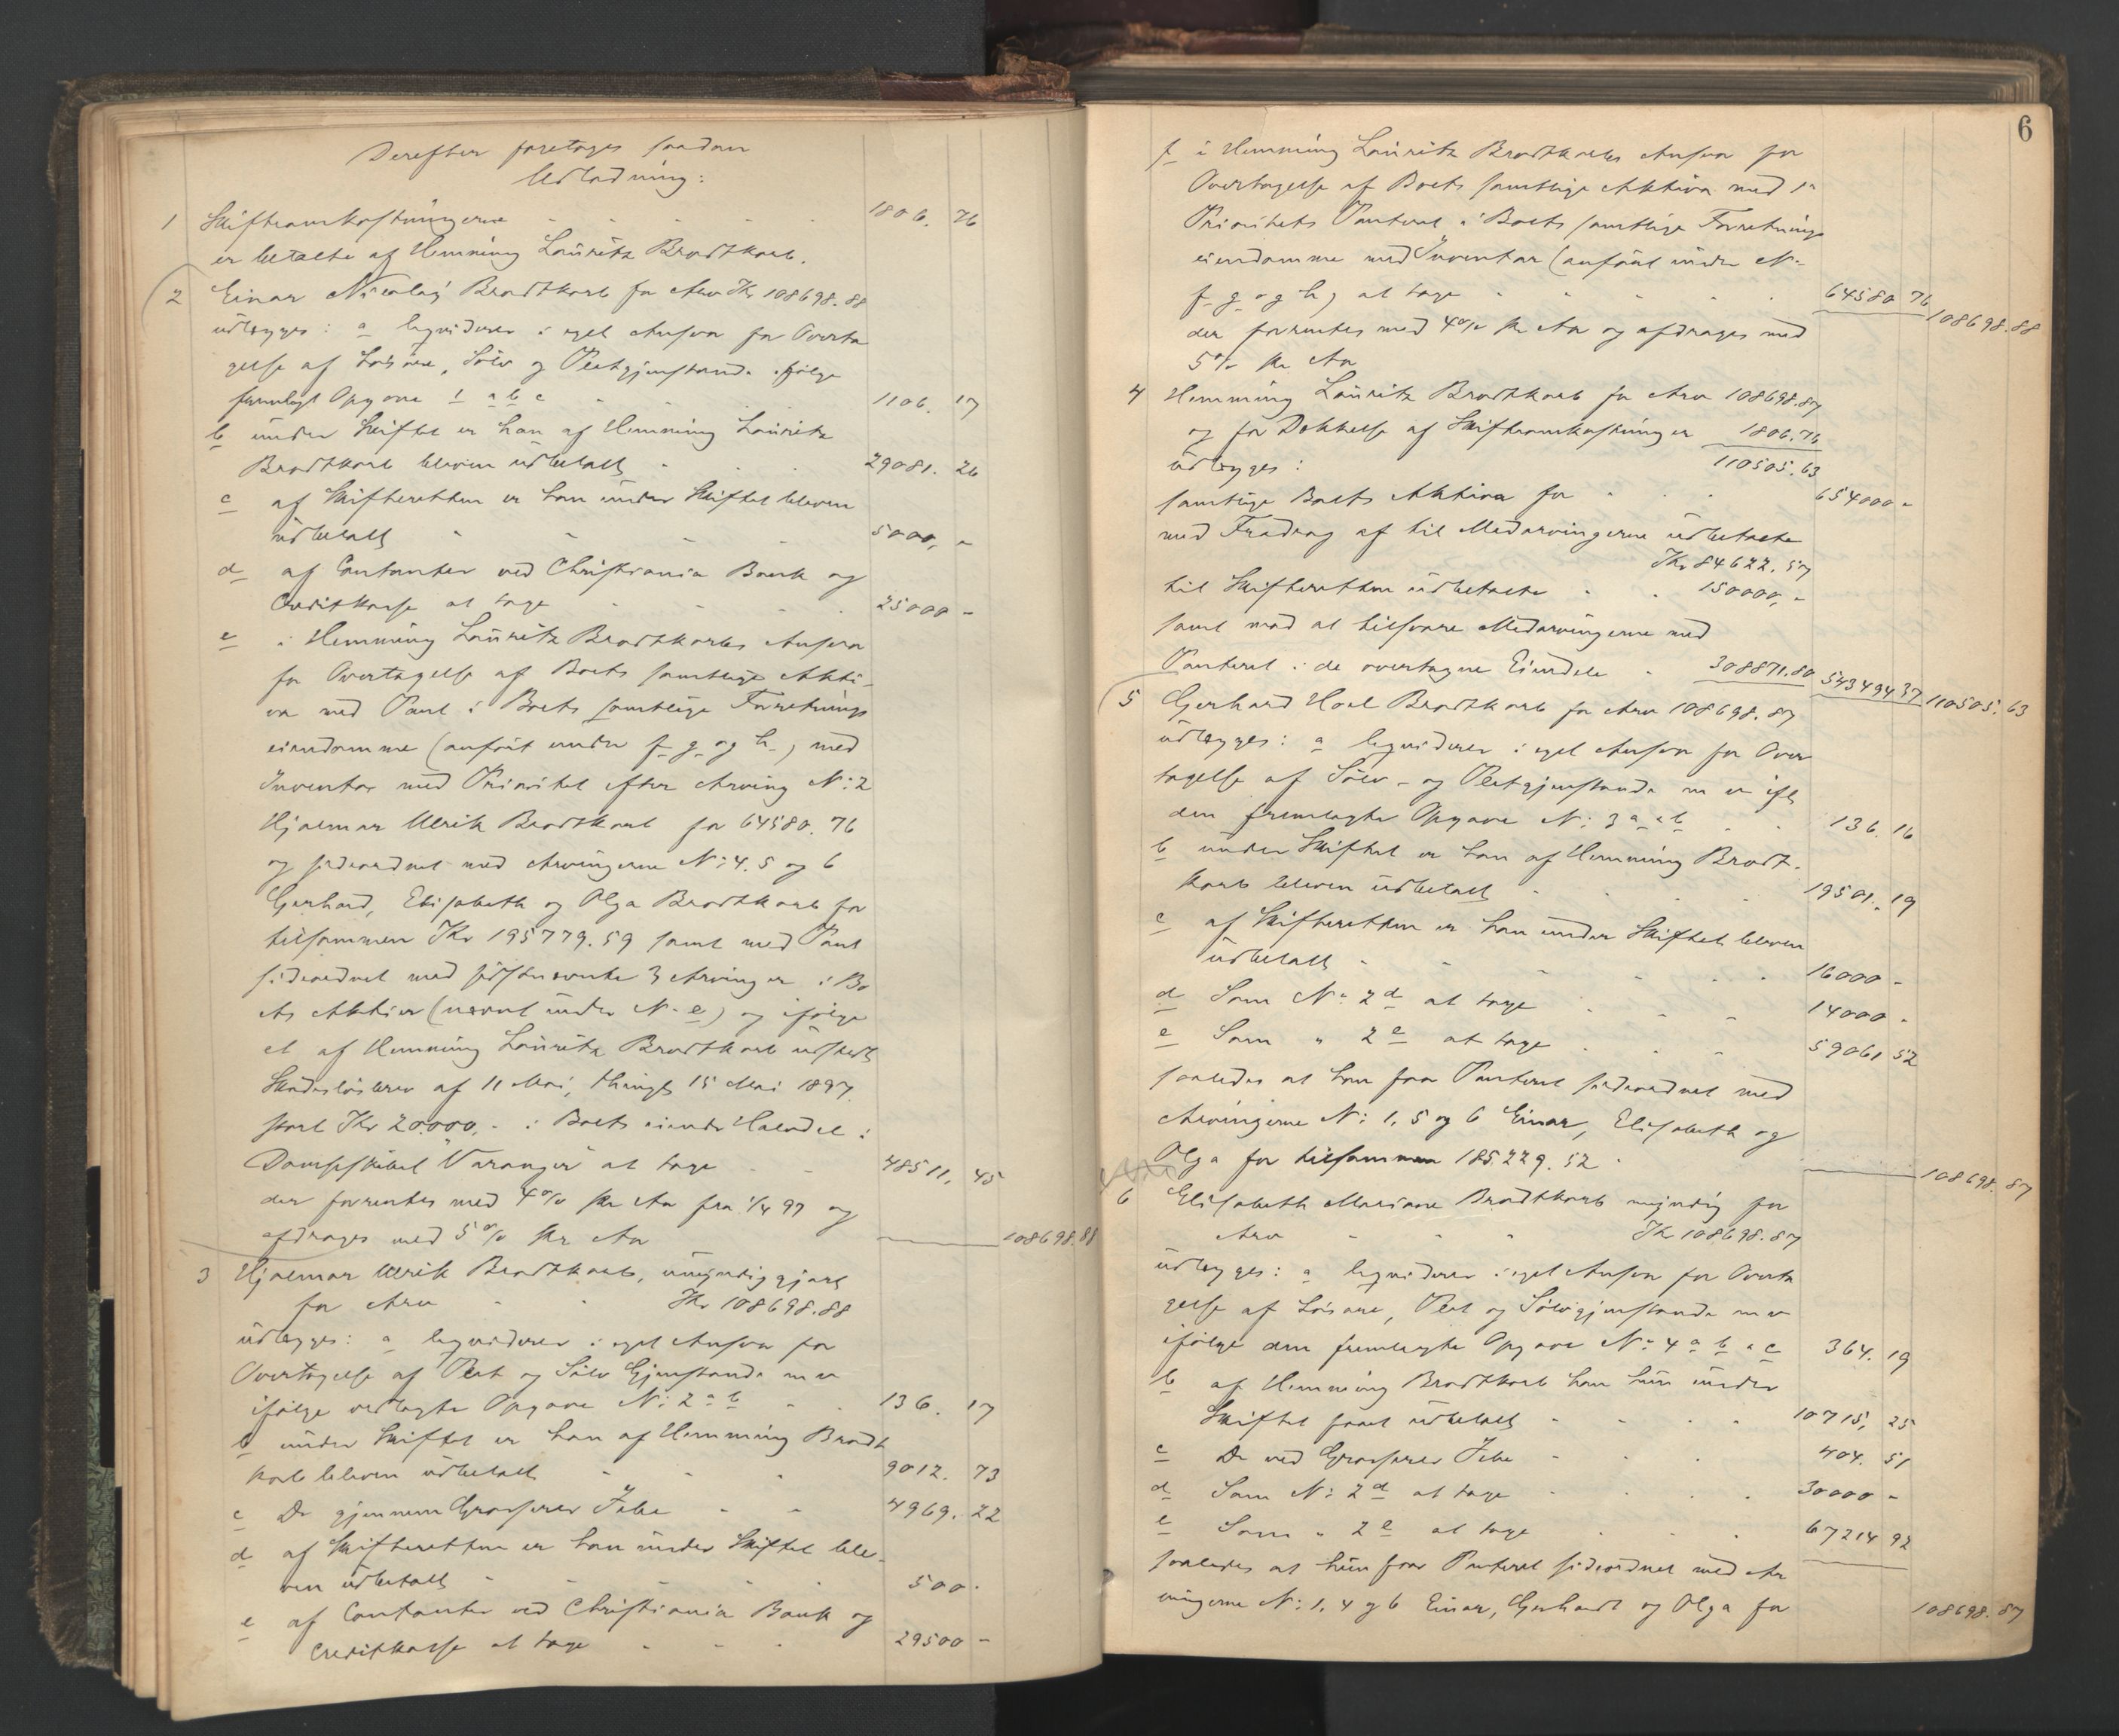 Derefter foretages saadan
Udlodning:
1 Skifteomkostningerne 1806. 76
er betalte af Hemming Lauritz Brodtkorb.
2 Einar Nicolaj Brodtkorb for Arv Kr 108698.88
udlægges: a liquiderer i eget Ansvar for Overta
gelse af Løsøre, Sölv og Pletgjenstande ifølge
fremlagt Opgave 1 a b c 1106. 17
b under Skiftet er han af Hemming Lauritz
Brodtkorb bleven udbetalt 29081. 26
c af Skifteretten er han under Skiftet bleven
udbetalt 5000, -
d af Contanter ved Christiania Bank og
Creditkasse at tage 25000 -
e i Hemming Lauritz Brodtkorbs Ansvar
for Overtagelse af Boets samtlige Akti-
va med Pant i Boets samtlige Forretnings
eiendomme (anført under f. g. og h.) med
Inventar med Prioritet efter Arving N: 2
Hjalmar Ulrik Brodtkorb for 64580. 76
og sideordnet med Arvingerne N: 4. 5 og 6
Gerhard, Elisabeth og Olga Brodtkorb for
tilsammen Kr 195779.59 samt med Pant
sideordnet med sidstnævnte 3 Arvinger i Bo
ets Aktier (nævnt under N. e) og ifølge
et af Hemming Lauritz Brodtkorb udstedt
Skadesløsbrev af 11 Mai, thinglt 15 Mai 1897.
stort Kr 20.000,- i Boets eiende Halvdel i
Dampskibet "Varanger" at tage 48511, 45
der forrentes med 4% pr Aar fra 1/4 97 og
afdrages med 5% pr Aar 108698.88
3 Hjalmar Ulrik Brodtkorb, umyndiggjort
for Arv Kr 108698.88
udlægges: a liquiderer i eget Ansvar for
Overtagelse af Plet og Sölv Gjenstande m v
ifølge vedlagte Opgave N: 2 a b 136. 17
b under Skiftet er han af Hemming Brodt
korb bleven udbetalt 9012. 73
c Do gjennem Grosserer Jebe 4969. 22
d af Skifteretten er han under Skiftet ble-
ven udbetalt 500.
e af Contanter ved Christiania Bank og
Creditkasse at tage 29500 -
6
f i Hemming Lauritz Brodtkorbs Ansvar for
Overtagelse af Boets samtlige Aktiva med 1ste
Prioritets Panteret i Boets samtlige Forretnings
eiendomme med Inventar (anført under N:
f. g. og h.) at tage 64580 76 108698.88
der forrentes med 4% pr Aar og afdrages med
5% pr Aar
4 Hemming Lauritz Brodtkorb for Arv 108698.87
og for Dekkelse af Skifteomkostninger 1806.76
udlægges: 110505.63
samtlige Boets Aktiva for 654000 -
med Fradrag af til Medarvingerne udbetalte
Kr 84622.57
til Skifteretten udbetalte 150000, -
samt mod at tilsvare Medarvingerne med
Panteret i de overtagne Eiendele 308871.80 543494 37 110505.63
5 Gerhard Hoel Brodtkorb for Arv 108698.87
udlægges: a liquiderer i eget Ansvar for Over
tagelse af Sölv- og Pletgjenstande m v iflg
den fremlagte Opgave N: 3 a & b 136. 16
b under Skiftet er han af Hemming Brodt-
korb bleven udbetalt 19501. 19
c af Skifteretten er han under Skiftet bleven
udbetalt 16000 -
d Som N: 2 d at tage 14000 -
e Som " 2 e at tage 59061 52
saaledes at han faar Panteret sideordnet med
Arvingerne N: 1, 5 og 6 Einar, Elisabeth og
Olga for tilsammen 185229.52 108698.87
6 Elisabeth Mariane Brodtkorb myndig for
Arv Kr 108698.87
udlægges: a liquiderer i eget Ansvar for Overta
gelse af Løsøre, Plet og Sölvgjenstande m v
ifølge den fremlagte Opgave N: 4 a b & c 364. 19
b af Hemming Brodtkorb har hun under
Skiftet faaet udbetalt 10715, 25
c Do ved Grosserer Jebe 404. 51
d Som N: 2 d at tage 30000 -
e Som " 2 e at tage 67214 92
saaledes at hun faar Panteret sideordnet med Ar
vingerne N: 1, 4 og 6 Einar, Gerhardt og Olga for 108698.87